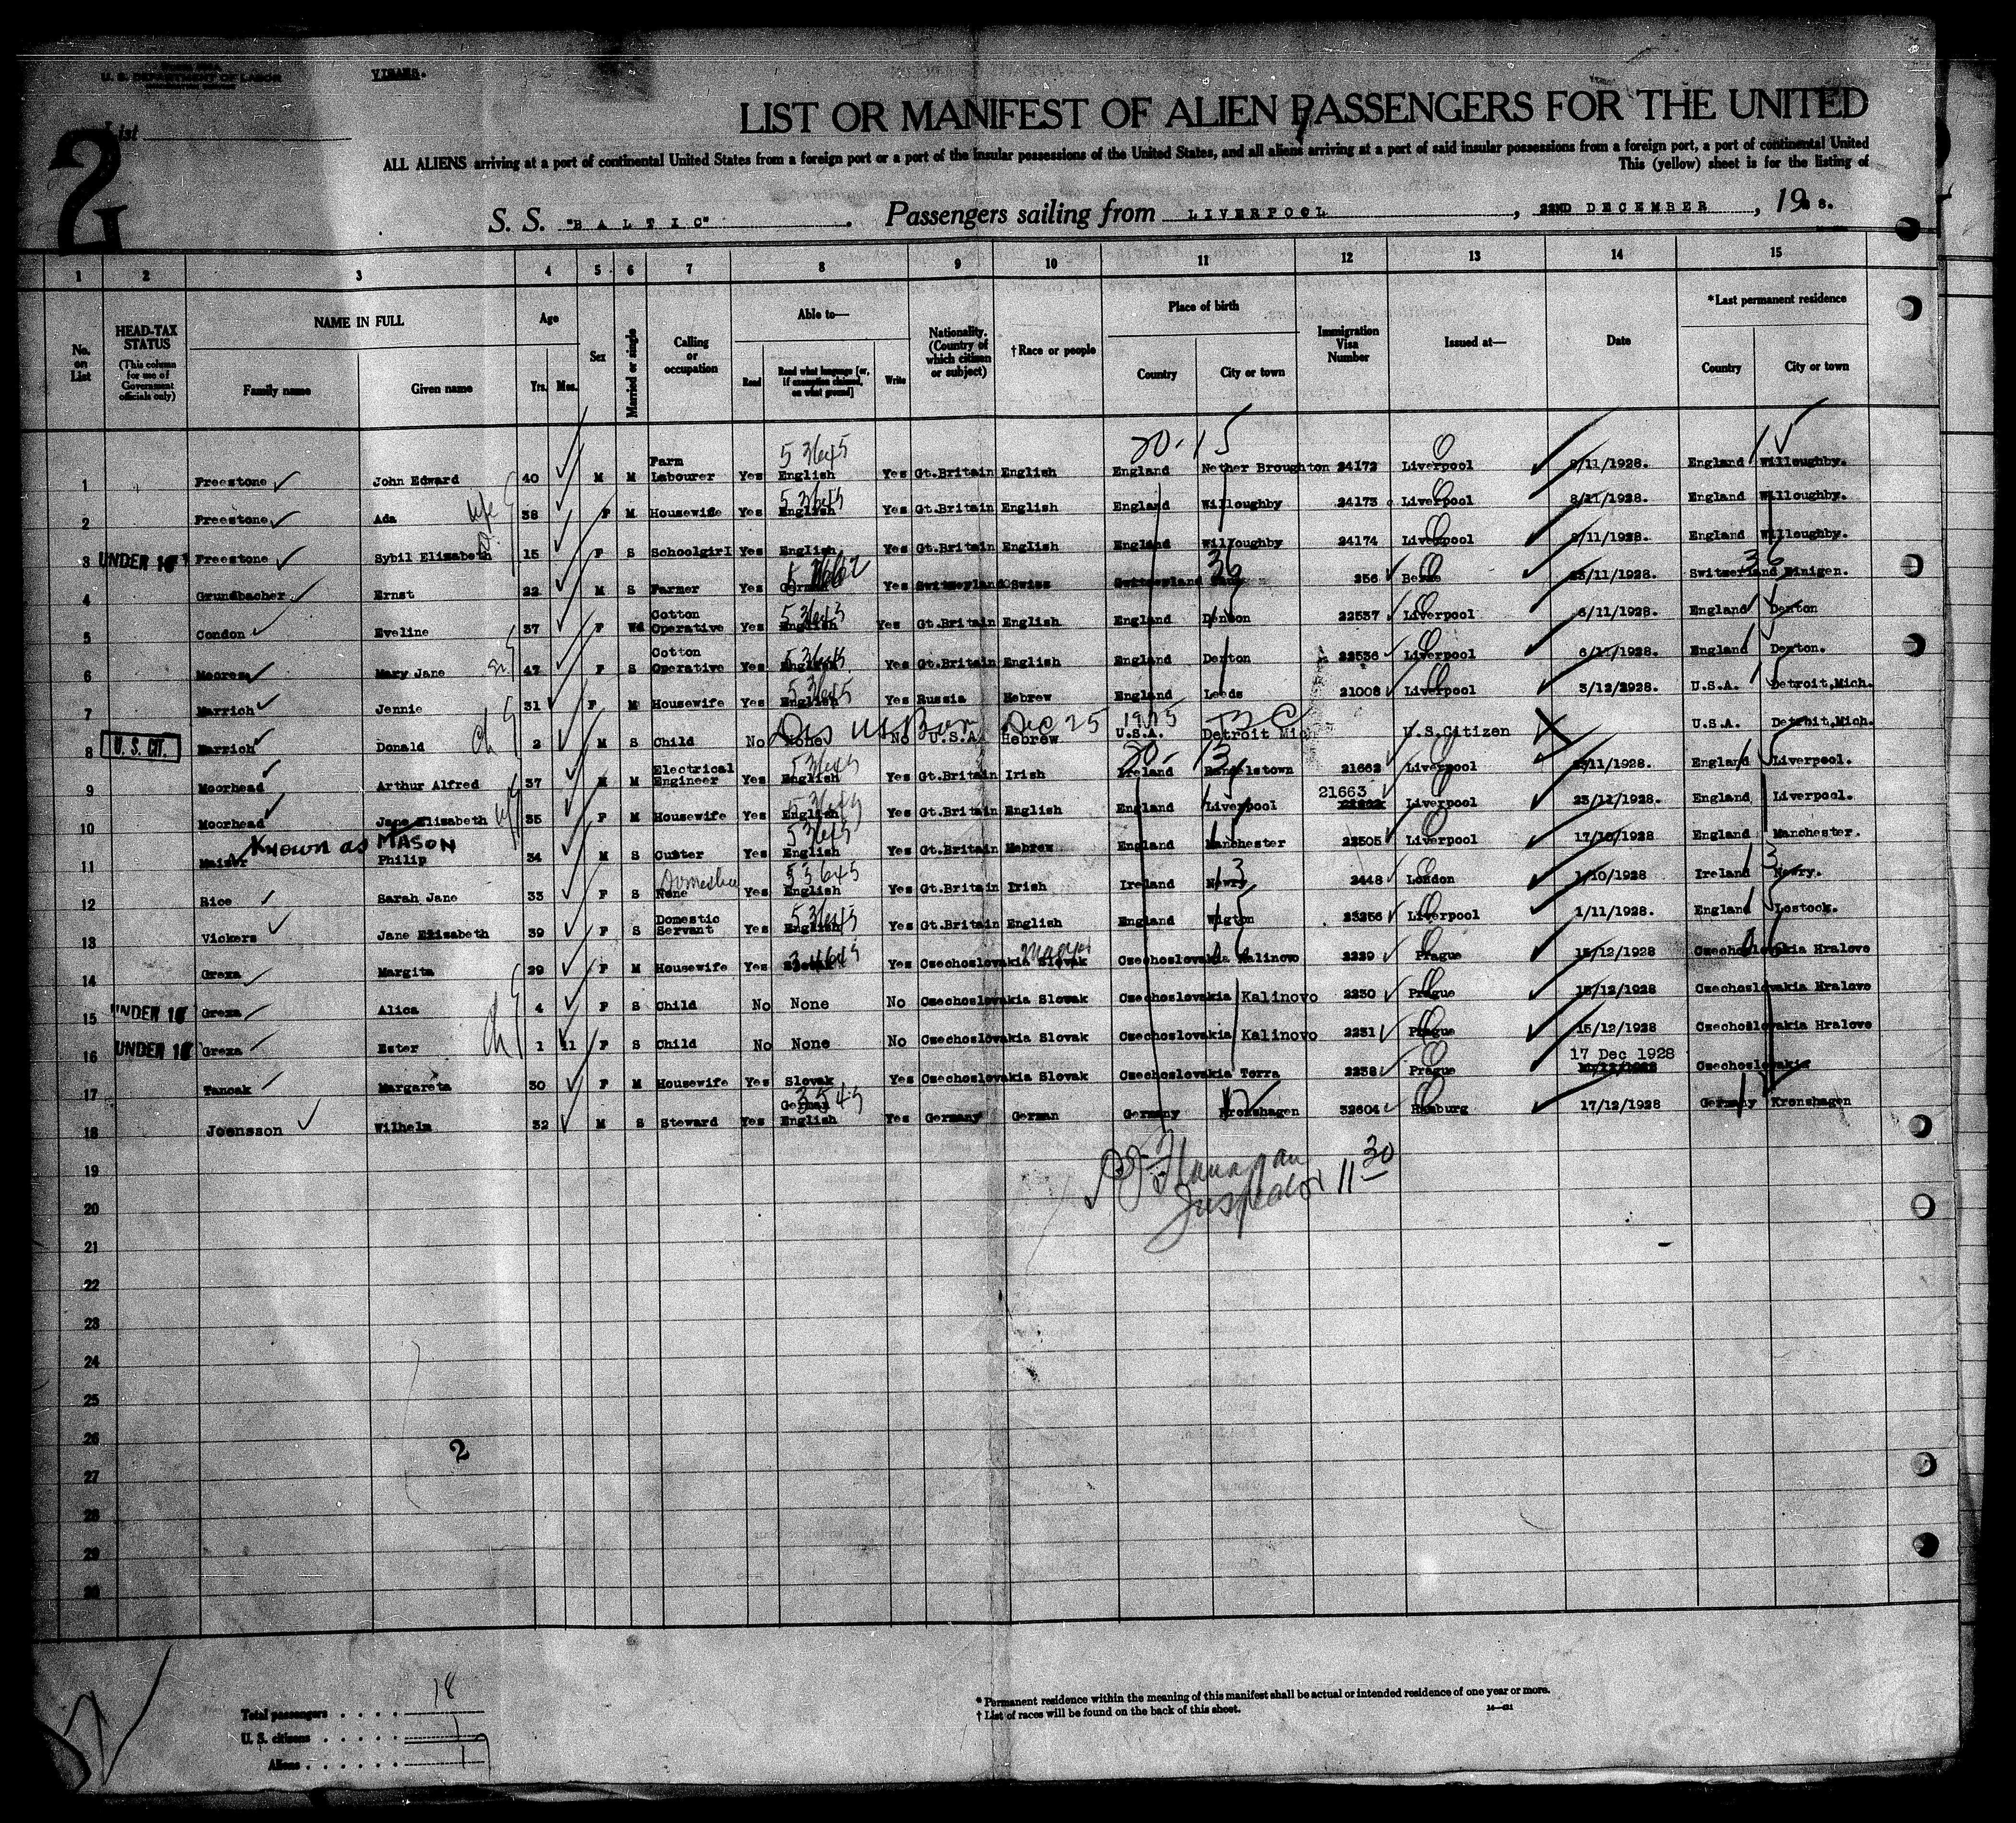 U. S. DEPARTMENT OF LABOR
List
2
LIST OR MANIFEST OF ALIEN PASSENGERS FOR THE UNITED
ALL ALIENS arriving at a port of continental United States from a foreign port or a port of the insular possessions of the United States, and all aliens arriving at a port of said insular possessions from a foreign port, a port of continental United
This (yellow) sheet is for the listing of
S. S. "BALTIC". Passengers sailing from LIVERPOOL, 22ND DECEMBER, 1928.
1 2 3 4 5 6 7 8 9 10 11 12 13 14 15
No. on List
HEAD-TAX STATUS (This column for use of Government officials only)
NAME IN FULL Family name Given name
Age Yrs. Mos.
Sex
Married or single
Calling or occupation
Able to— Read Read what language [or, if exemption claimed, on what ground] Write
Nationality. (Country of which citizen or subject)
†Race or people
Place of birth Country City or town
Immigration Visa Number
Issued at—
Date
*Last permanent residence Country City or town
20-15
1 Freestone John Edward 40 M M Farm Labourer Yes English 53645 Yes Gt.Britain English England Nether Broughton 24172 Liverpool 8/11/1928. England Willoughby.
2 Freestone Ada wife 38 F M Housewife Yes English 53645 Yes Gt.Britain English England Willoughby 24173 Liverpool 8/11/1928. England Willoughby.
3 UNDER 16 Freestone Sybil Elizabeth 15 F S Schoolgirl Yes English Yes Gt.Britain English England Willoughby 24174 Liverpool 8/11/1928. England Willoughby.
4 Grundbacher Ernst 22 M S Farmer Yes German Yes Switzerland Swiss Switzerland 36 256 Berne 23/11/1928. Switzerland Einigen. 36
5 Condon Eveline 37 F Wd Cotton Operative Yes English 53645 Yes Gt.Britain English England Denton 22537 Liverpool 6/11/1928. England Denton
6 Mary Jane 47 F S Cotton Operative Yes English 53645 Yes Gt.Britain English England Denton 22536 Liverpool 6/11/1928. England Denton.
7 Marrich Jennie 31 F M Housewife Yes English 53645 Yes Russia Hebrew England Leeds 21008 Liverpool 3/12/2928. U.S.A. Detroit,Mich.
Dec 25 1925
8 U. S. CIT. Marrich Donald ch 2 M S Child No None No U.S.A. Hebrew U.S.A. Detroit Mic U.S.Citizen U.S.A. Detroit,Mich.
20- 13
9 Moorhead Arthur Alfred 37 M M Electrical Engineer Yes English 53645 Yes Gt.Britain Irish Ireland 21662 Liverpool England Liverpool.
10 Moorhead Jane Elizabeth wf 35 F M Housewife Yes English 53645 Yes Gt.Britain English England Liverpool 21663 Liverpool 23/11/1928. England Liverpool.
KNOWN as MASON
11 Philip 34 M S Cutter Yes English 53645 Yes Gt.Britain Hebrew England Manchester 22505 Liverpool 17/10/1928 England Manchester.
12 Rice Sarah Jane 33 F S None Domestic Yes English 53645 Yes Gt.Britain Irish Ireland Newry 13 2448 London 1/10/1928 Ireland Newry. 13
13 Vickers Jane Elizabeth 39 F S Domestic Servant Yes English 53645 Yes Gt.Britain English England Wigton 23256 Liverpool 1/11/1928. England Lostock.
14 Greza Margita 29 F M Housewife Yes Slovak Yes Czechoslovakia Slovak Magyar Czechoslovakia Kalinovo 2229 Prague 15/12/1928 Czechoslovakia Hralove
15 UNDER 16 Greza Alica ch 4 F S Child No None No Czechoslovakia Slovak Czechoslovakia Kalinovo 2230 Prague 15/12/1928 Czechoslovakia Hralove
16 UNDER 16 Greza Ester 1 11 F S Child No None No Czechoslovakia Slovak Czechoslovakia Kalinovo 2231 Prague 15/12/1928 Czechoslovakia Hralove
17 Tancak Margareta 30 F M Housewife Yes Slovak Yes Czechoslovakia Slovak Czechoslovakia Torra 2238 Prague 17 Dec 1928 Czechoslovakia
18 Joensson Wilhelm 32 M S Steward Yes German English Yes Germany German Germany Kronshagen 32604 Hamburg 17/12/1928 Germany Kronshagen
19
Flanagan
Inspector 11 30
20
21
22
23
24
25
26
2
27
28
29
30
Total passengers . . . . 18
U. S. citizens . . . . . 1
Aliens . . . . . . 17
* Permanent residence within the meaning of this manifest shall be actual or intended residence of one year or more.
† List of races will be found on the back of this sheet.